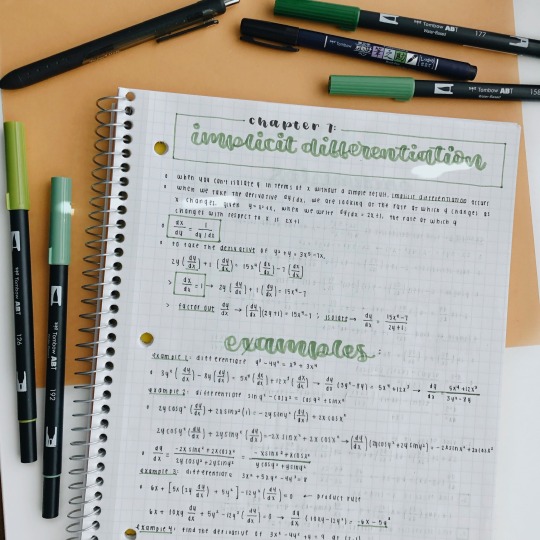 chapter 7:
implicit differentiation
when you can't isolate y in terms of x without a simple result, implicit differentiation occurs
when we take the derivative dy/dx, we are looking at the rate at which y changes as
x changes. given y=x²+x, when we write dy/dx = 2x+1, the rate at which y
changes with respect to x is 2x+1
dx/dy = 1/(dy/dx)
to take the derivative of y²+y = 3x⁵-7x,
2y(dy/dx)+1(dy/dx) = 15x⁴(dx/dx)-7(dx/dx)
dx/dx = 1 → 2y(dy/dx)+1(dy/dx) = 15x⁴-7
factor out dy/dx → (dy/dx)(2y+1) = 15x⁴-7 ; isolate → dy/dx = 15x⁴-7/2y+1
examples
example 1: differentiate y³-4y² = x⁵+3x⁴
3y²(dy/dx)-8y(dy/dx) = 5x⁴(dx/dx)+12x³(dx/dx) → dy/dx (3y²-8y) = 5x⁴+12x³ → dy/dx = 5x⁴+12x³/3y²-8y
example 2: differentiate siny²-cosx² = cosy²+sinx²
2ycosy²(dy/dx)+2xsinx²(1) = -2ysiny²(dy/dx)+2xcosx²
2ycosy²(dy/dx)+2ysiny²(dy/dx) = -2xsinx²+2xcosx² → (dy/dx)(2ycosy²+2ysiny²) = -2xsinx²+2xcosx²
dy/dx = -2xsinx²+2xcosx²/2ycosy²+2ysiny² = -xsinx²+xcosx²/ycosy²+ysiny²
example 3: differentiate 3x²+5xy²-4y³=0
6x+[5x(2y dy/dx)+5y²]-12y²(dy/dx)=0 ← product rule
6x+10xy dy/dx+5y²-12y²(dy/dx)=0 → dy/dx (10xy-12y²) = -6x-5y²
example 4: find the derivative of 3x²-4y²
Tombow ABT
Water-Based
177
Tombow
Tombow ABT
Water-Based
158
Tombow ABT
126
Tombow ABT
192